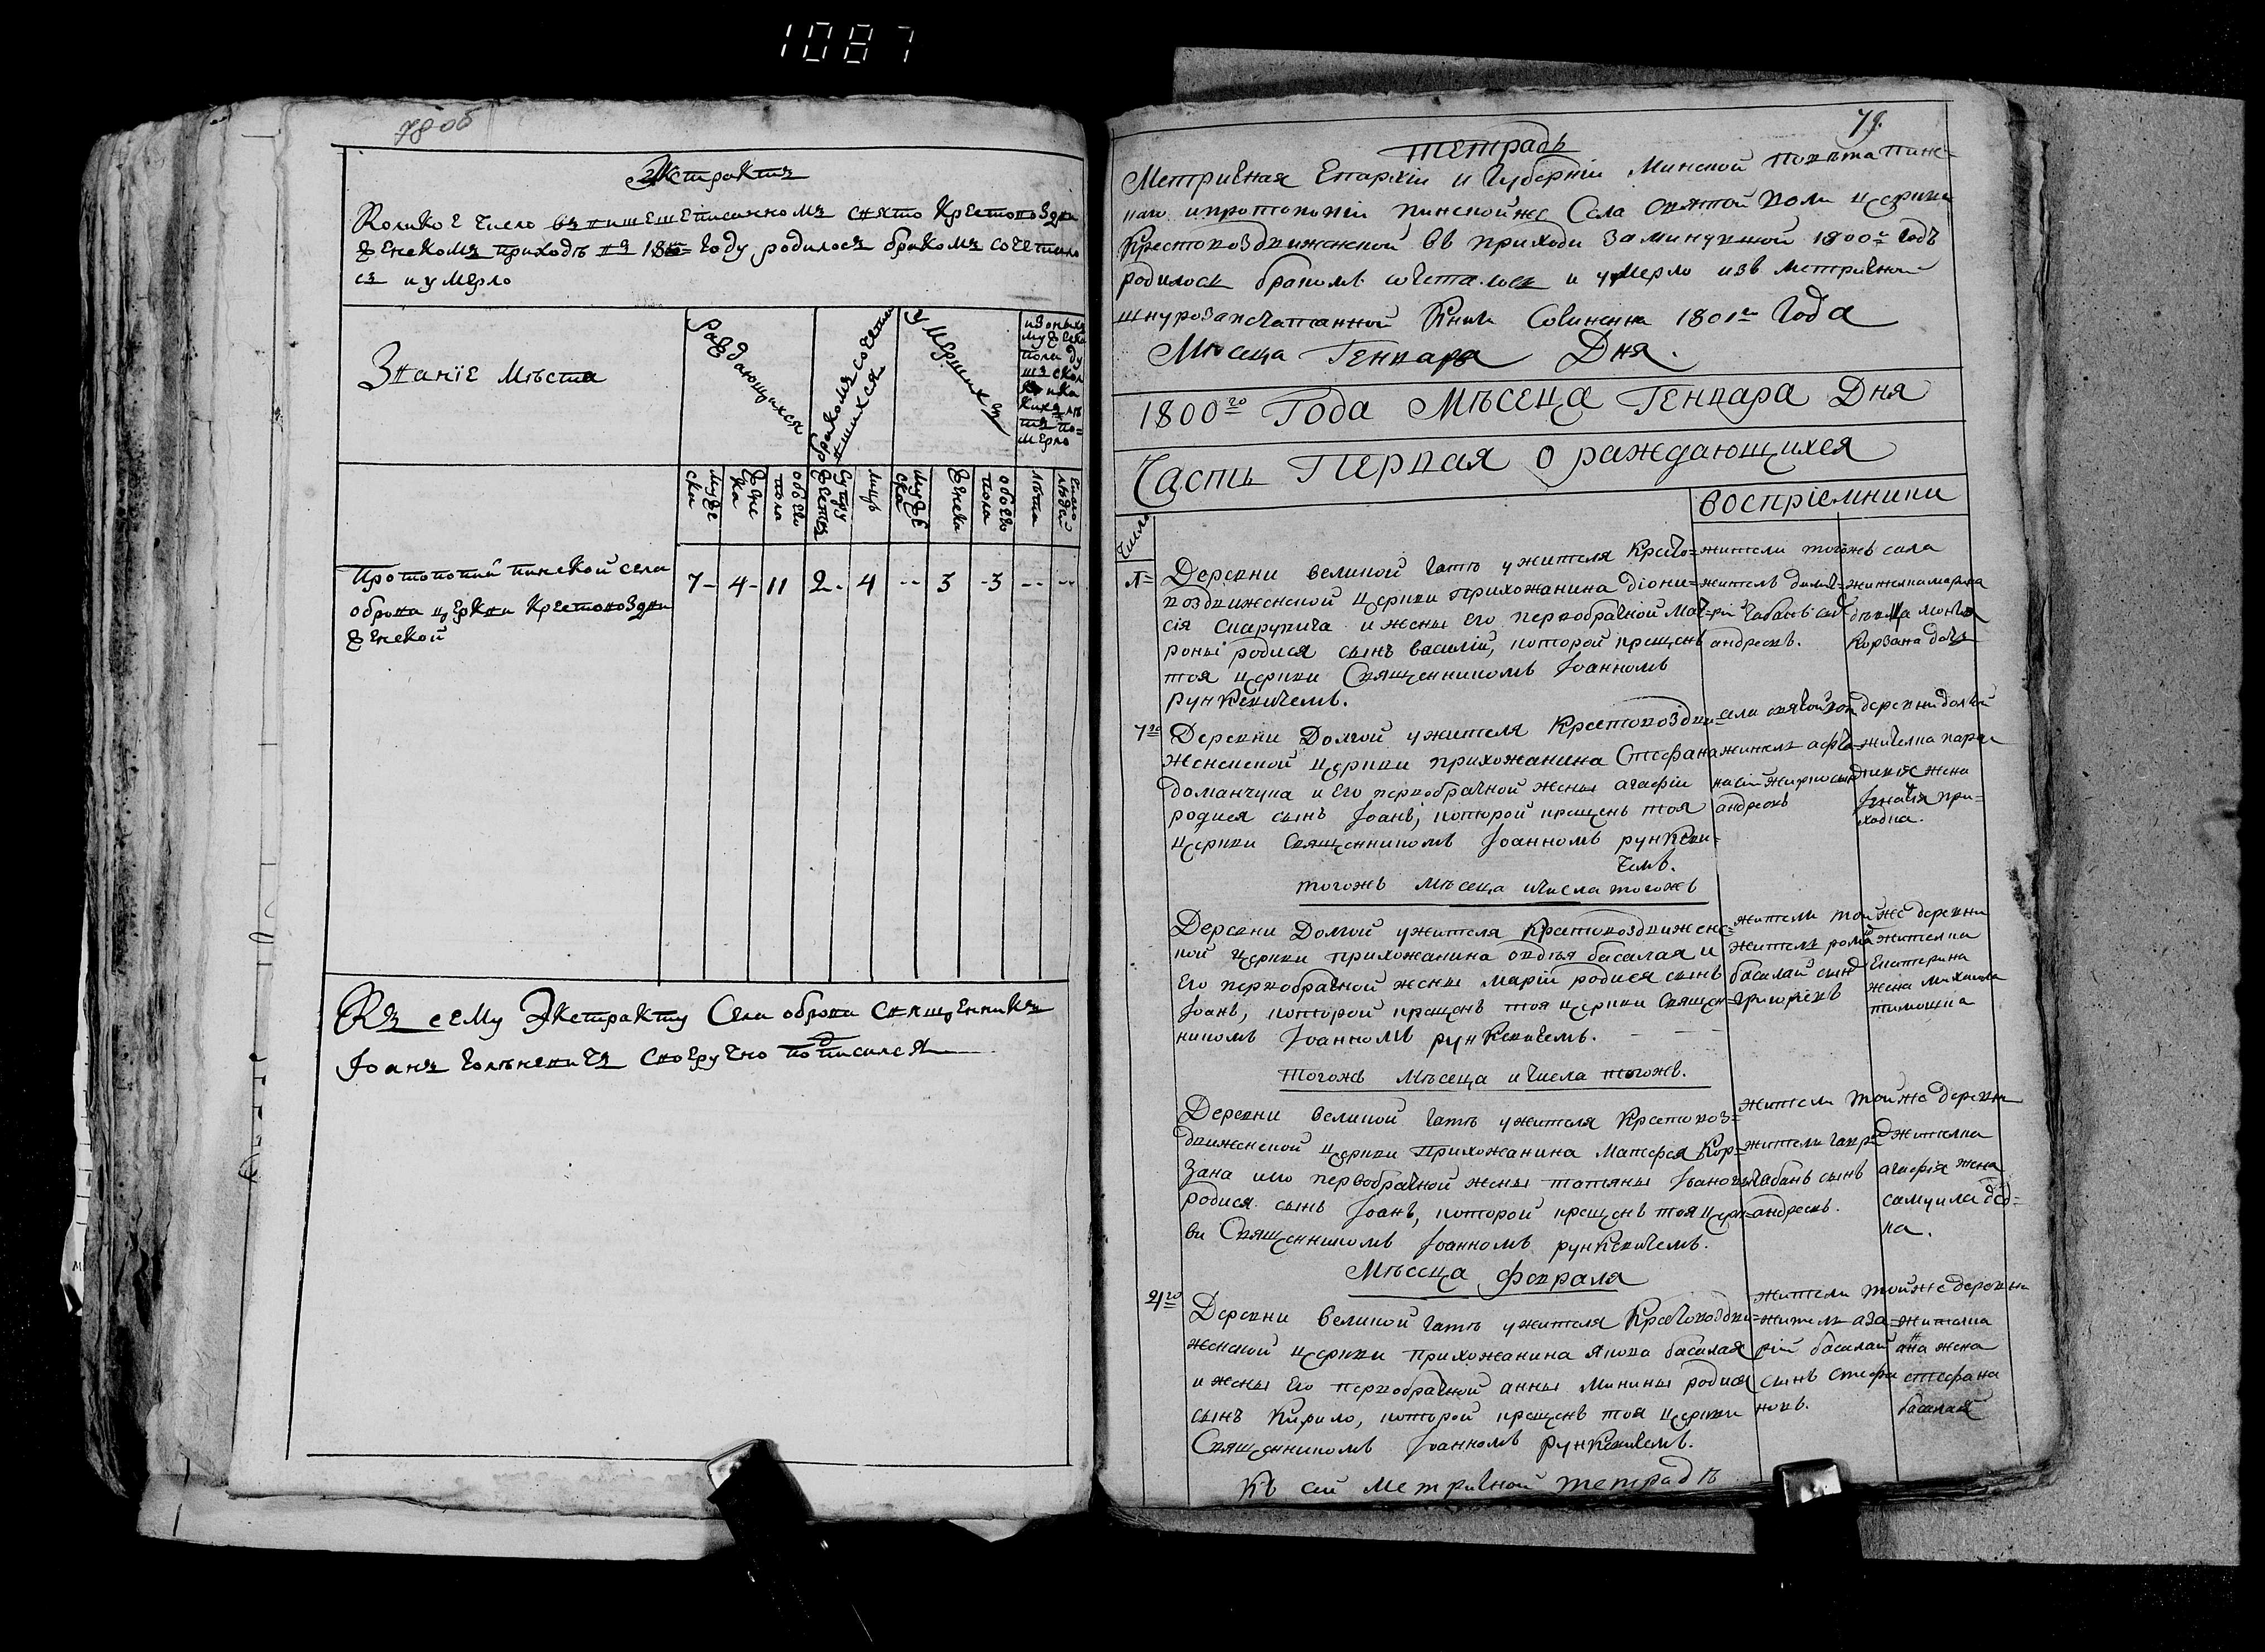 1087
78 об
Экстрактъ
Коликое число въ нижшеписанномъ свято Крестовоздви
женскомъ приходѣ въ 18 году родилось бракомъ сочетало
съ и умерло
Званїе мѣста
Раждающихся
бракомъ сочета
вшихся
Умершихъ
изоныхъ
мужеска
пола ду
шъ скол
ка
кихъ лѣ
тъ по=
мерло
муже
ски
жене
ка
обоего
пола
супру
жествъ
лицъ
муже
ска
женска
обоего
пола
лѣта
число
людей
Протопопїи пинской села
оброва церкви Крестовоздви
женской
7- 4- 11 2- 4 -- 3 -3 -- --
Къ сему Экстракту Села оброва Священникъ
Іоанъ своеручно подписался
79.
Тетрадь
Метричная Епархіи и Губерніи Минской повѣта пинс=
каго и протопопіи пинской же Села Святой воли церкви
Крестовоздвиженской въ приходи заминувшой 1800г годъ
родилось бракомъ сочеталось и умерло изъ метричной
шнурозапечатанной Книги Совинена 1801го Года
Мѣсеца Генвара Дня.
1800го Года Мѣсеца Генвара Дня
Часть Первая о раждающихся
воспріемники
Число
Деревни великой Гать ужителя Кресто=
воздвиженской церкви прихожанина діони=
сія Скарувича и жены его первобрачной Мат=
роны родися сынъ василій, которой крещенъ
тоя церкви Священникомъ Іоанномъ
рункевичемъ.
жители тогожъ села
житель дими=
рій Чабанъ сынъ
андреевъ.
жителка марна
дѣвица
Корзана дочь
7го
Деревни Долгой ужителя Крестовоздви=
женской церкви прихожанина Стефана
Доманчука и его первобрачной жены агафіи
родися сынъ Іоанъ, которой крещенъ тоя
церкви Священникомъ Іоанномъ рункеви=
чемъ.
села святой вол
житель афа=
насій жирко сынъ
андреевъ
деревни долгой
жителка пара
жена
Ігнатія при=
ходка.
тогожъ мѣсеца ичисла тогожъ
Деревни Долгой ужителя Крестовоздвиженс=
кой церкви прихожанина авдѣя басалая и
его первобрачной жены маріи родися сынъ
Іоанъ, которой крещенъ тоя церкви Священ=
никомъ Іоанномъ рункевичемъ.
жители тойже деревни
житель рома
басалай сынъ
григоріевъ
жителка
Екатерина
жена михаила
тимошка
тогожъ мѣсеца и числа тогожъ.
Деревни великой Гать ужителя Крестовоз=
движенской церкви прихожанина Матфея Кор=
зана иего первобрачной жены татяны Івановы
родися сынъ Іоанъ, которой крещенъ тоя церк=
ви Священникомъ Іоанномъ рункевичемъ.
жители тойже деревни
житель гаври
Чабанъ сынъ
андреевъ.
жителка
агафія жена
самуила дѣд=
ка.
Мѣсеца февраля
21го
Деревни великой Гать ужителя Крестовоздви=
женской церкви прихожанина якова басалая
и жены его первобрачной анны Минины родися
сынъ Кирило, которой крещенъ тоя церкви
Священникомъ Іоанномъ рункевичемъ.
жители тойже деревни
житель аза=
рій басалай
сынъ стефа
новъ.
жителка
анна жена
стефана
басалая
Къ сей метричной тетрадѣ